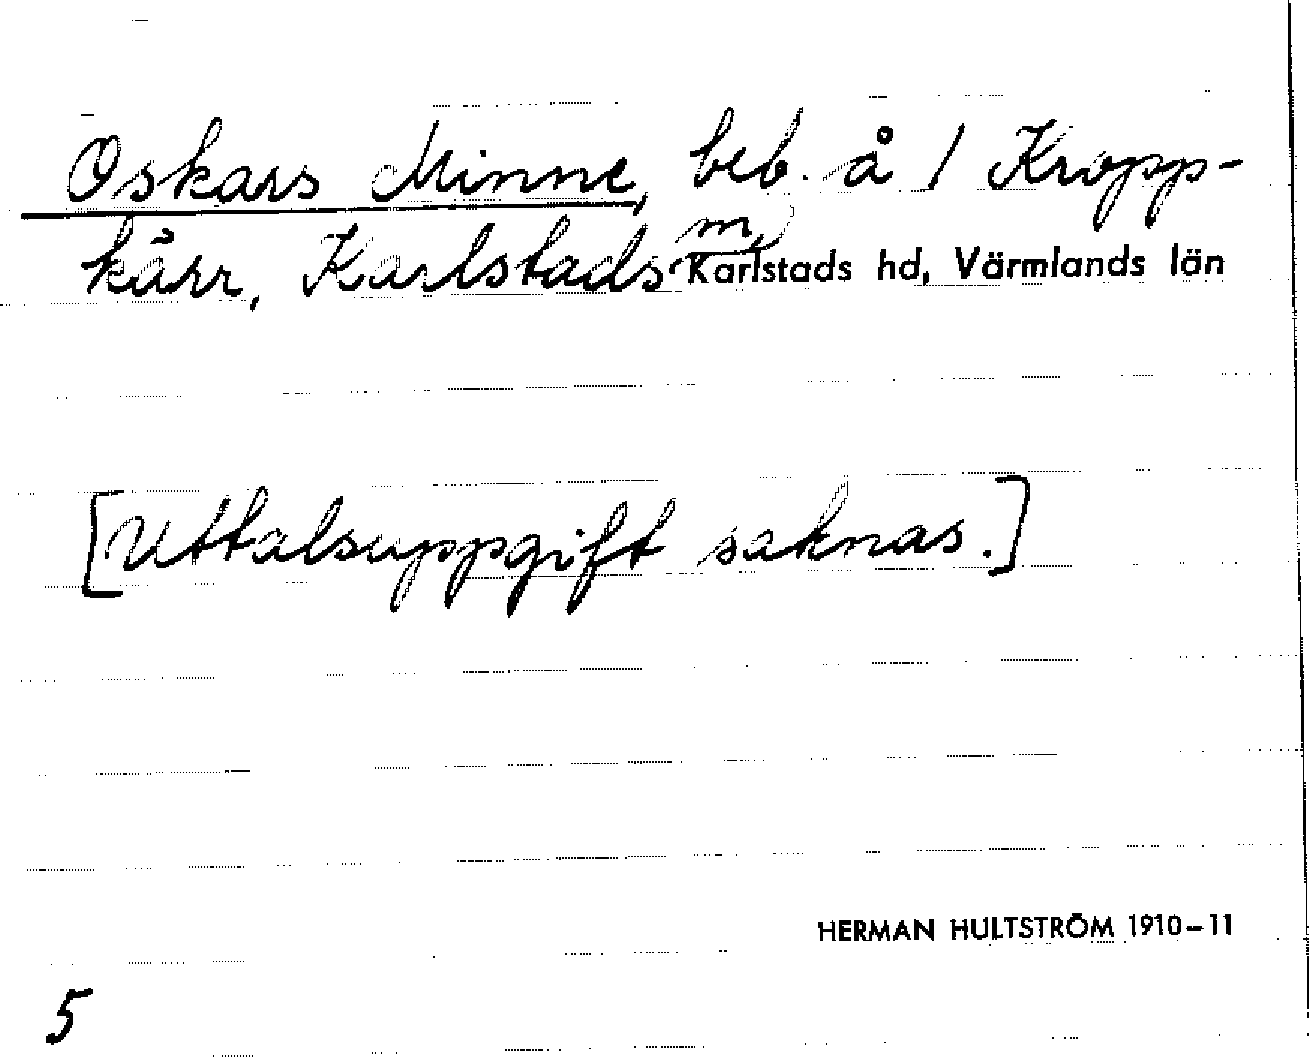 Oskars Minne, beb. å 1 Kropp-
kärr, Karlstads m, Karlstads hd, Värmlands län
[Uttalsuppgift saknas.]
HERMAN HULTSTRÖM 1910-11
5